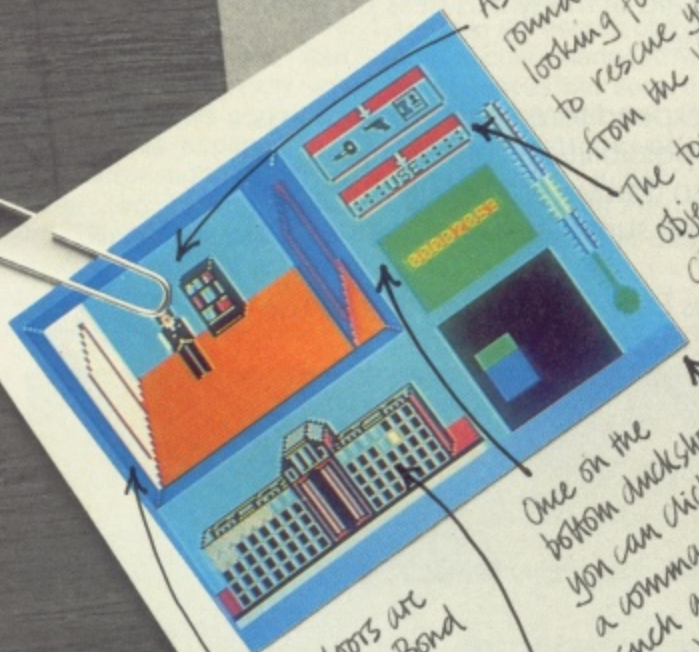 As
round
looking fo
to rescue y
from the
The to
obje
USE
00002050
Once on the
bottom ducksh
you can clic
a comma
such a
doors are
Bond